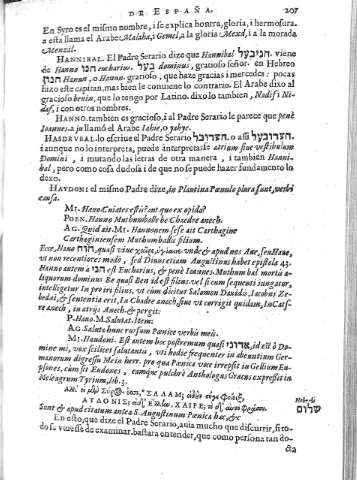 DE ESPAÑA. 207
En Syro es el mismo nombre, i se explica honrra, gloria, i hermosura.
a esta llama el Arabe Malaha, i Gemel, a la gloria Mezd, i a la morada
Menzil.
HANNIBAL. El Padre Serario dize que Hannibal חניבעל. viene
de Hanno חנו eucharius. בעל dominus, gratioso señor. en Hebreo
חנון Hanun, o Hannun. gratioso, que haze gracias i mercedes: pocas
hizo este capitan, mas bien le conviene lo contrario. El Arabe dixo al
gracioso henin, que lo tengo por Latino. dixo lo tambien, Nadif i Ni-
daf, i con otros nombres.
HANNO. tambien es gracioso, i al Padre Serario le parece que penè
Ioannes. a ju llamó el Arabe Iahie, o yahye.
HASDRVBAL. lo escrive el Padre Serario. חסדרובל o assi
i aunque no lo interpreta, puede interpretarse atrium sive vestibulum
Domini, i mutando las letras de otra manera, i tambien Hanni-
bal, pero como cosa dudosa i de que no se puede hazer fundamento lo
dexo.
HAVDONI el mismo Padre dize, in Plantina Pænulo plura sunt, verbi
causa.
MI. Havo. Cuiates estis aut que ex opido?
POEN. Hanno Muthumballe be Chaedre anech.
AG. Quid ait MI. Hannonem sese ait Carthagine
Carthaginiensem Muthumballis filium.
Ecce, Hano חוה, quasi vive unde & apud nos Ave, seu Have,
ut non recentiores modò, sed Divus etiam Augustinus habet epistola 43.
Hanno autem à חני est Eucharius, & penè Ioannes. Muthum bal mortis a-
liquorum dominus Be quasi Ben id est filius vel si cum sequenti iungatur,
intelligetur In pro iri filius, ut cùm dicitur Salomon Davidis, Iacobus Ze-
bedai, & sententia erit, In Chadre anech, sive ut corrigit quidam, In Cas-
re anech, in atrijs Anech: & pergit:
P. Hano. M. Salutat. Item:
AG. Salutat hunc rursum Punice verbis meis.
MI. Haudoni. Est autem hoc postremum quasi, אדוני id est ô Do-
mine mi, vox scilicet salutantis, uti hodie frequenter in abeuntium Ger-
manorum digressu Mein herr. pro qua Punica vice irrepsit in Gellium Eu-
psones, cùm sit Eudones, eamque pulchrè Anthologus Græcus expressit in
Meleagrum Tyrium, lib. 3.
ΣΑΛΑΜ;
ΑΥΔΟΝΙΣ; ΧΑΙΡΕ;
Sunt & apud citatum antea S. Augustinum Punica hac, &c
Hebr. hà
שלום
En esto, que dize el Padre Serario, avia mucho que discurrir, si to-
do se vuiesse de examinar. bastara entender, que como persona tan do-
cta